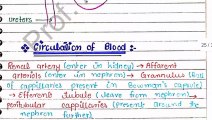 Ureters
Circulation of Blood :-
Renal artery (enter in kidney) → Afferent
arteriols (enter in nephron) → Gromnulus (Ball
of cappillaries present in Bowman's capsule)
→ Efferents tubule (leave from nephron) →
peritubular cappillaries (present around the
nephron further)